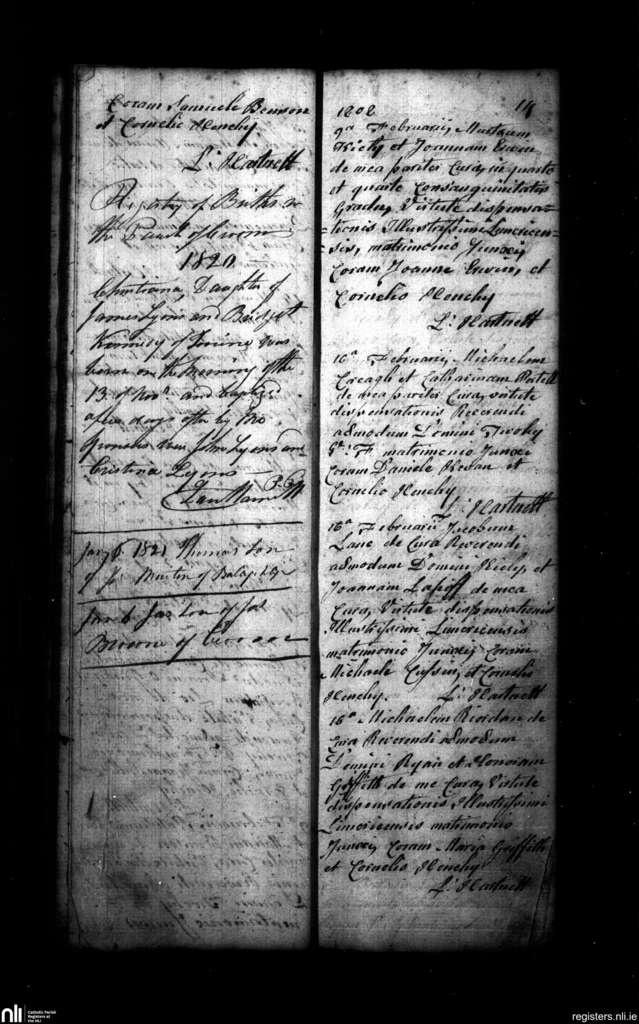 Coram Samuele Benson
et Cornelio Henchy
L: Hartnett
Registry of Births in
the Parish of Croom
1820
Christiana, Daughter of
James Lyons and Bridget
Kennedy of Croom was
born on the Morning of the
13 of Novr and baptized
a few days after by me
Sponsors were John Lyons and
Cristina Lyons
P.P.
Jany 6 1821 Thomas son
of Js Martin of
Jan 6 Jas son of Jas
Browne of
14
1808
9a Februarii,
et Joannam
de mea pariter Cura, in quarto
et quarto Consanguinitatis
Gradu, Virtute dispensa-
-tionis Illustrissimi Limericen-
-sis, matrimonio Junxi,
Coram Joanne et
Cornelio Henchy
L: Hartnett
16a Februarii Michaelem
Creagh et Catharinam
de mea pariter Cura, virtute
dispensationis Reverendi
admodum Domini
matrimonio Junxi
Coram Daniele et
Cornelio Henchy
L: Hartnett
16a Februarii Jacobum
Lane de Cura Reverendi
admodum Domini et
Joannam de mea
Cura, Virtute dispensationis
Illustrissimi Limericensis
matrimonio Junxi, Coram
Michaele et Cornelio
Henchy. L: Hartnett
16a Michaelem Riordan de
Cura Reverendi admodum
Domini Ryan et Honoram
Griffith de me Cura, Virtute
dispensationis Illustrissimi
Limericensis matrimonio
Junxi, Coram Maria Griffith
et Cornelio Henchy
L: Hartnett
nli
Catholic Parish
Registers at
the NLI
registers.nli.ie